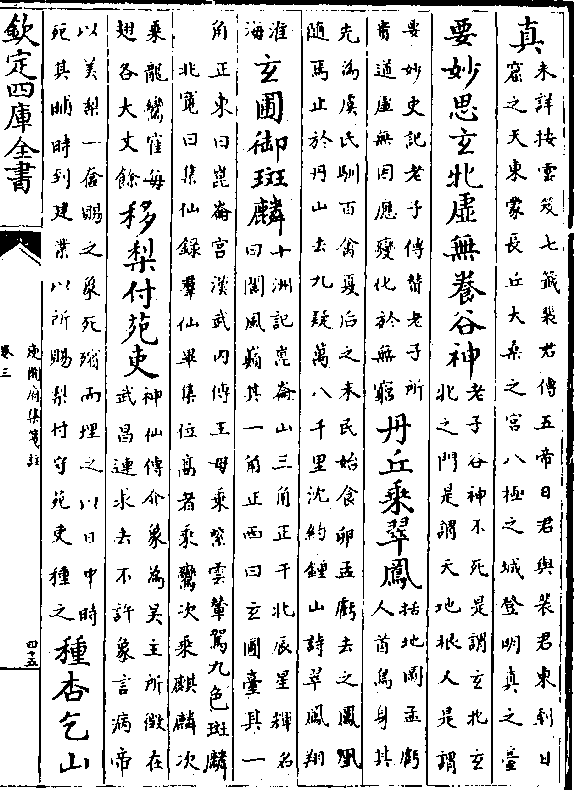 真
未詳按雲笈七籤裴君傳五帝日君與裴君東到日
窟之天東蒙長丘大桑之宮八極之城登明真之臺
要妙思玄牝虛無養谷神
老子谷神不死是謂玄牝玄
牝之門是謂天地根人是謂
要妙史記老子傳賛老子所
貴道虛無因應變化於無窮
丹丘乘翠鳳
括地圖孟虧
人首鳥身其
先為虞氏馴百禽夏后之末民始食卵孟虧去之鳳凰
隨焉止於丹山去九疑萬八千里沈約鍾山詩翠鳳翔
淮
海
玄圃御斑麟
十洲記崑崙山三角正干北辰星輝名
曰閬風巔其一角正西曰玄圃臺其一
角正東曰崑崙宮漢武内傳王母乘紫雲輦駕九色斑麟
北寛曰集仙録羣仙畢集位髙者乘鸞次乘麒麟次
乗龍鸞寉每
翅各大丈餘
移梨付苑吏
神仙傳介象為吳主所徴在
武昌連求去不許象言病帝
以美梨一奩賜之象死殯而埋之以日中時
死其晡時到建業以所賜梨付守苑吏種之
種杏乞山
欽定四庫全書
庾開府集箋註
卷三
四十五